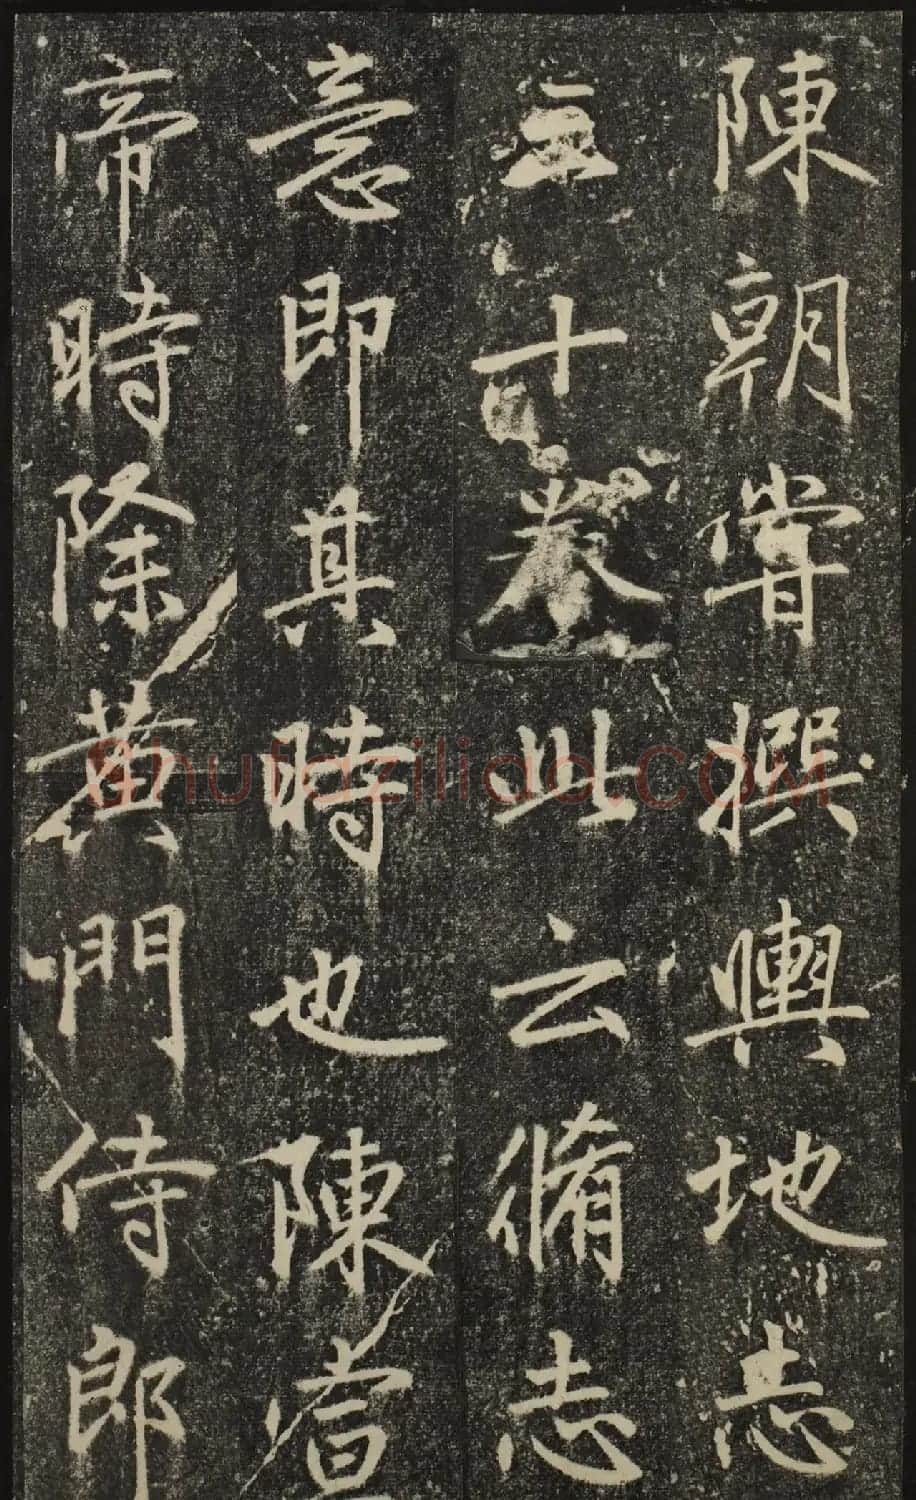 陳朝嘗撰輿地志
三十卷此云脩志
意即其時也陳宣
帝時除黃門侍郎
Shufaziliao.COM